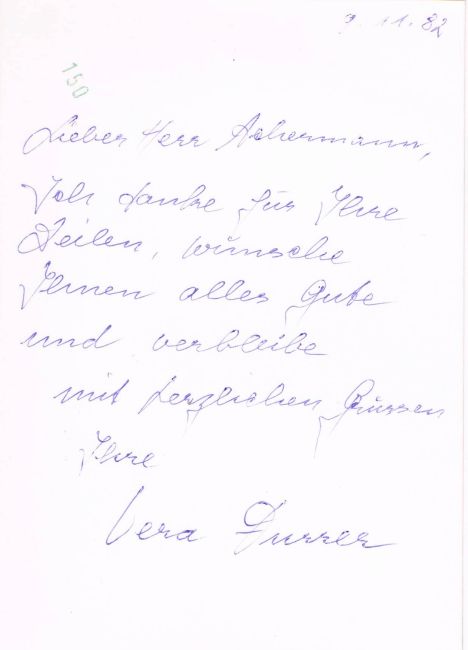 9.11.82
150
Lieber Herr Ackermann,
Ich danke für Ihre
Zeilen, wünsche
Ihnen alles Gute
und verbleibe
mit herzlichen Grüssen
Ihre
Vera Durrer